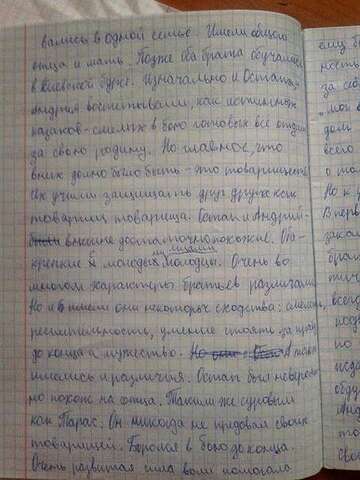 вались в одной семье. Имели общего
отца и мать. Позже оба брата обучались
в Киевской бурсе. Изначально и Остапа, и
Андрия воспитывали, как истинных
казаков - смелых в бою готовых все отдать
за свою родину. Но главное, что
в них должно было быть - это товарищество.
Их учили защищать друг друга как
товарищ товарища. Остап и Андрий-
внешне достаточно похожие. Это-
крепкие и молодые молодцы. Очень во
многом характеры братьев различались.
Но и имели они некоторые сходства: смелость,
решительность, умение стоять за правду
до конца и мужество. А также
имелись и различия. Остап был невероят-
но похож на отца. Таким же суровым
как Тарас. Он никогда не предавал своих
товарищей. Боролся в бою до конца.
Очень развитая сила воли помогала